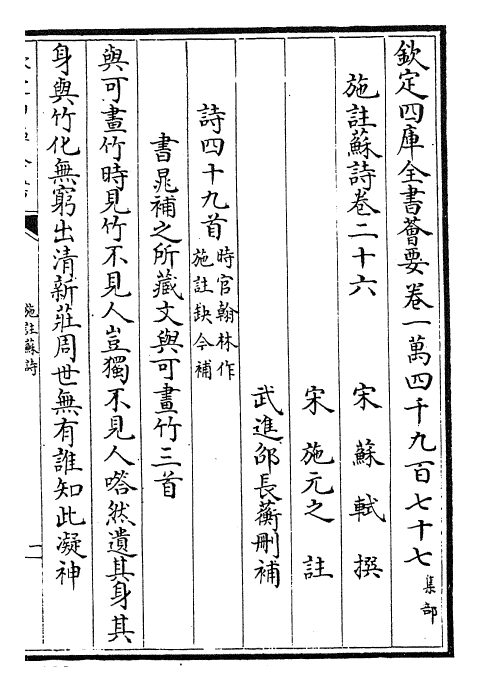 欽定四庫全書薈要卷一萬四千九百七十七 集部
施註蘇詩卷二十六 宋 蘇軾 撰
宋 施元之 註
武進邵長蘅刪補
詩四十九首 時官翰林作 施註缺今補
書晁補之所藏文與可畫竹三首
與可畫竹時見竹不見人豈獨不見人嗒然遺其身其
身與竹化無窮出清新莊周世無有誰知此凝神
施註蘇詩
一